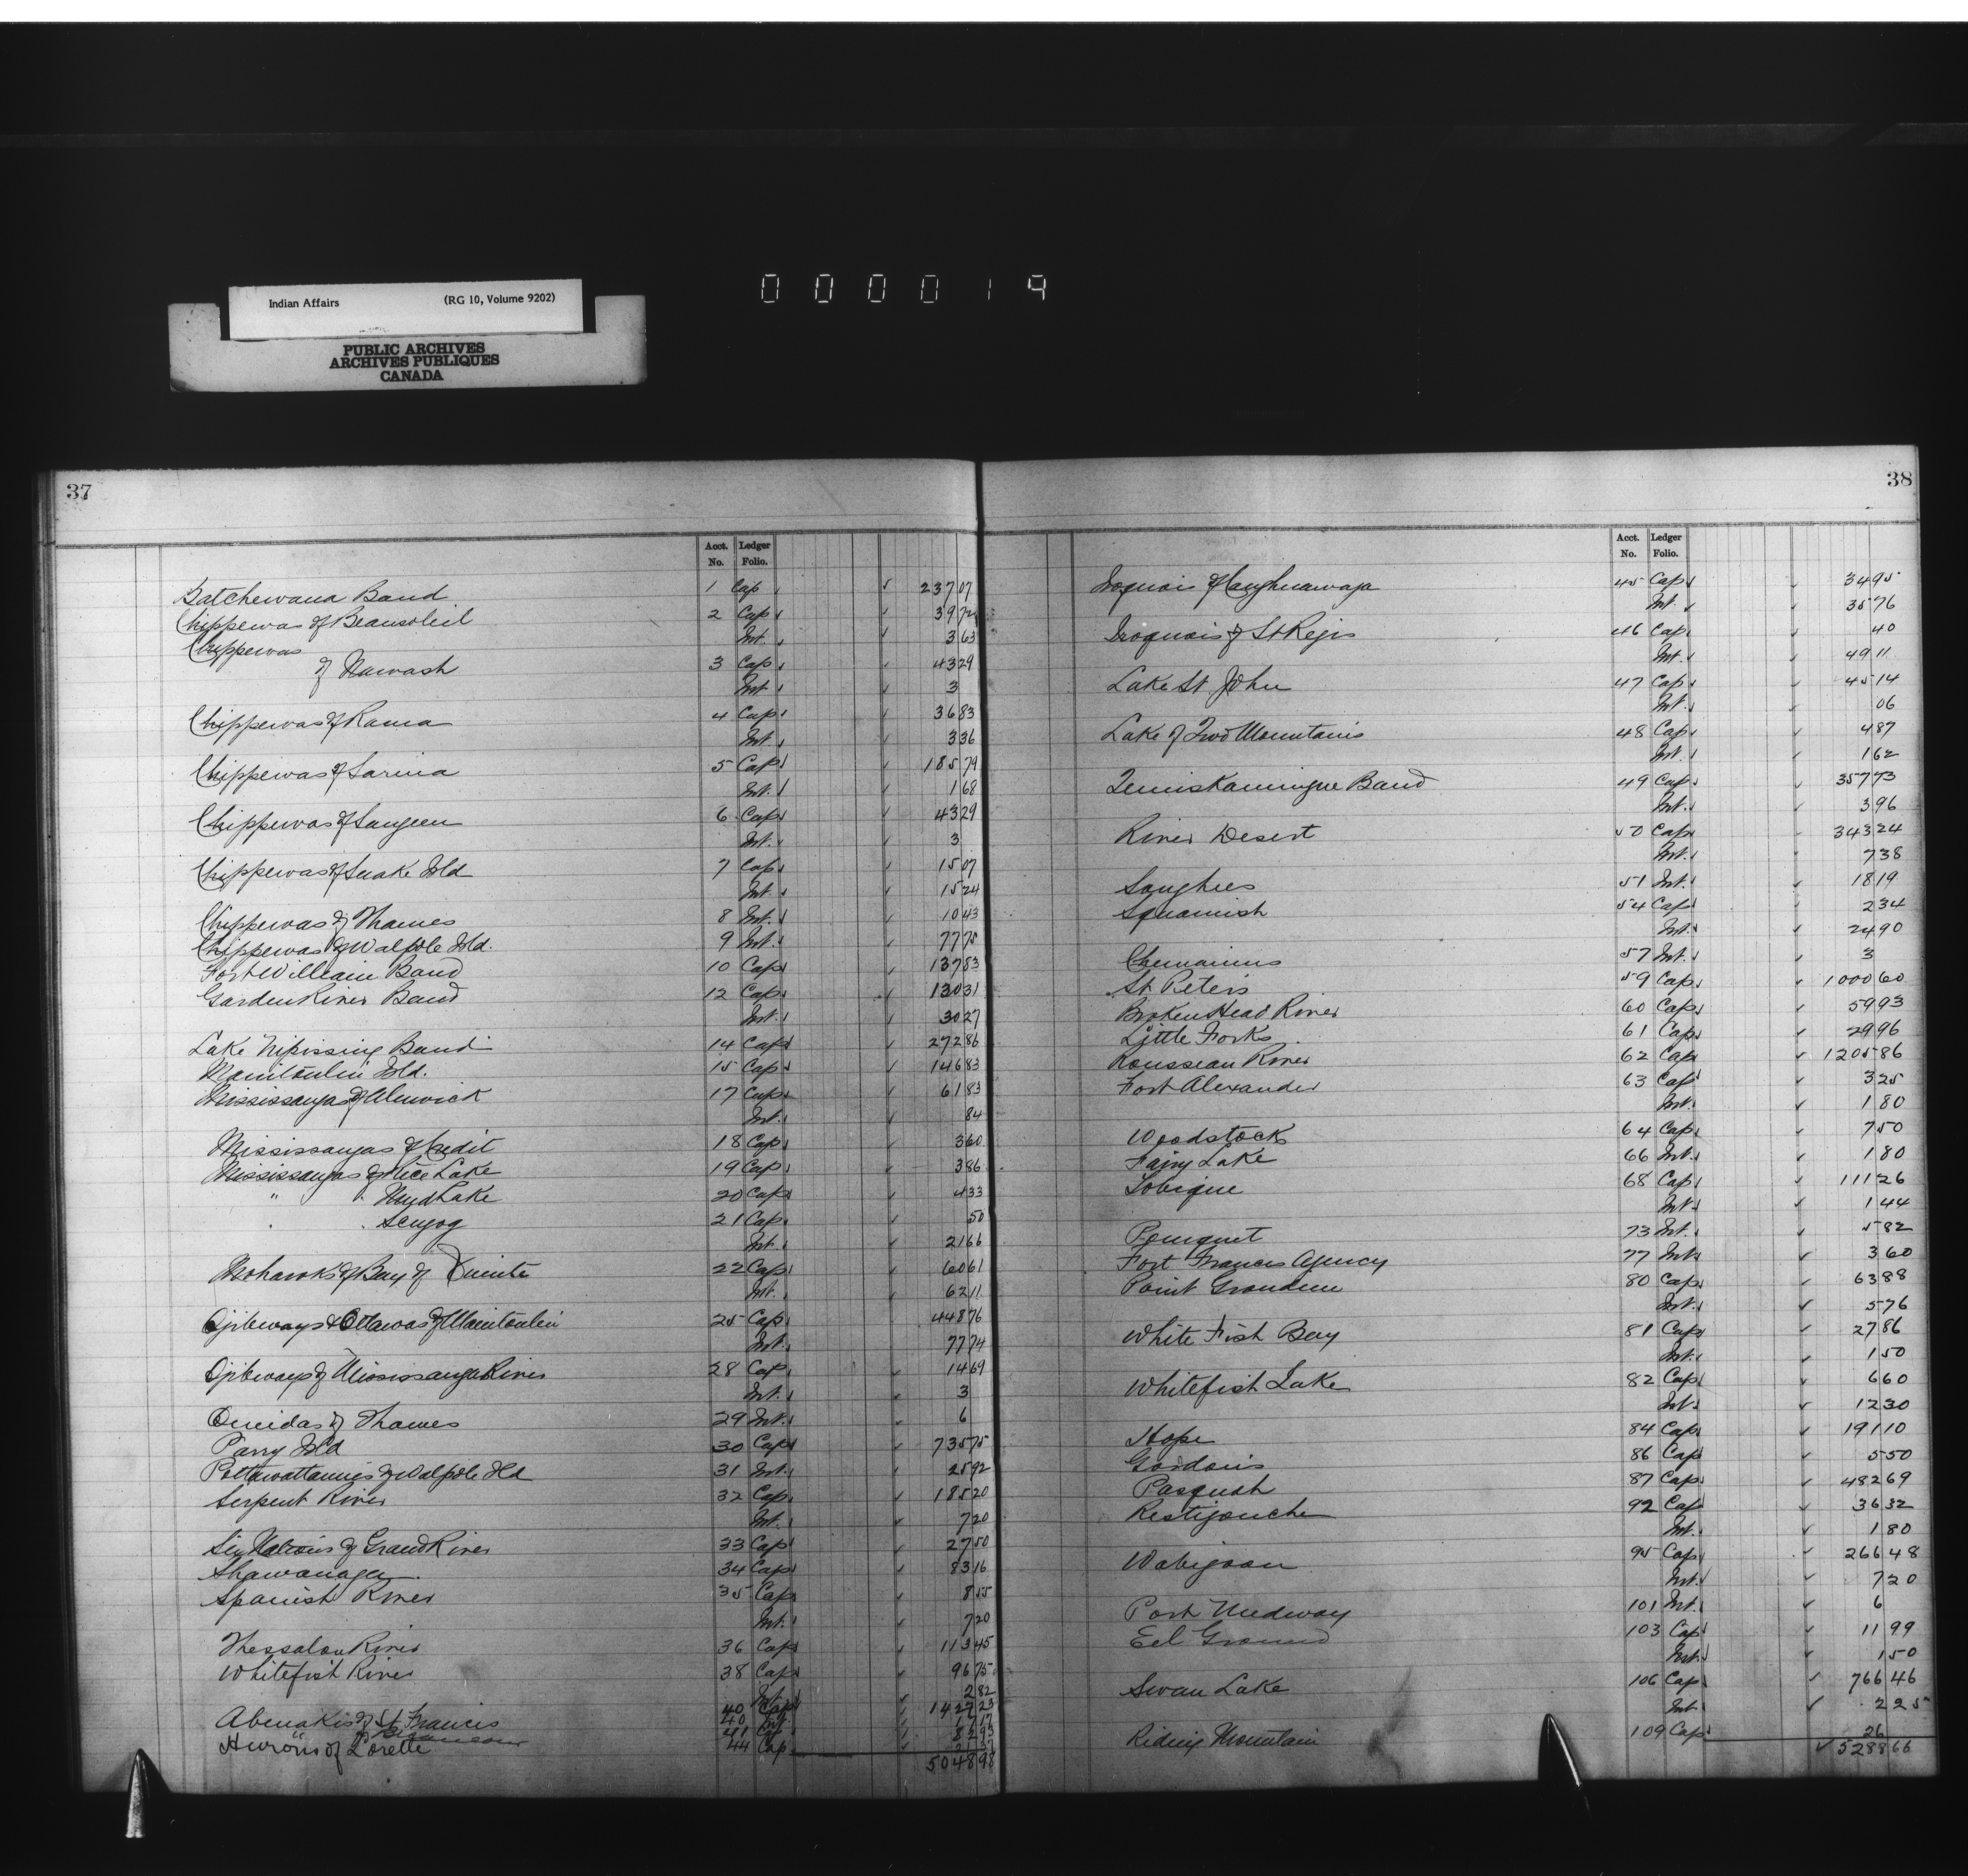 000019
Indian Affairs (RG 10, Volume 9202)
PUBLIC ARCHIVES
ARCHIVES PUBLIQUES
CANADA
37
Acct. No. Ledger Folio.
Batchewana Band 1 Cap 237 07
Chippewas of Beausoleil 2 Cap 39 72
Int. 3 63
Chippewas
of Nawash 3 Cap 43 29
Int. 3
Chippewas of Rama 4 Cap 36 83
Int. 3 36
Chippewas of Sarnia 5 Cap 185 79
Int. 1 68
Chippewas of Saugeen 6 Cap 43 29
Int. 3
Chippewas of Snake Isld 7 Cap 15 07
Int. 15 24
Chippewas of Thames 8 Int. 10 43
Chippewas of Walpole Isld. 9 Int. 77 75
Fort William Band 10 Cap 137 83
Garden River Band 12 Cap 130 31
Int. 30 27
Lake Nipissing Band 14 Cap 272 86
Manitoulin Isld. 15 Cap 146 83
Mississaugas of Alnwick 17 Cap 61 83
Int. 84
Mississaugas of Credit 18 Cap 3 60
Mississaugas of Rice Lake 19 Cap 3 86
" " Mud Lake 20 Cap 4 33
" " Scugog 21 Cap 50
Int. 21 66
Mohawks of Bay of Quinte 22 Cap 60 61
Int. 62 11
Ojibeways & Ottawas of Manitoulin 25 Cap 448 76
Int. 77 74
Ojibways of Mississauga River 28 Cap 14 69
Int. 3
Oneidas of Thames 29 Int. 6
Parry Isld 30 Cap 735 75
Pottawattamies of Walpole Isld 31 Int. 25 92
Serpent River 32 Cap 185 20
Int. 7 20
Six Nations of Grand River 33 Cap 27 50
Shawanaga 34 Cap 83 16
Spanish River 35 Cap 8 55
Int. 7 20
Thessalon River 36 Cap 113 45
Whitefish River 38 Cap 96 75
Int. 2 82
Abenakis of St Francis 40 Cap
40 Int.
41 Cap
Hurons of Lorette 44 Cap
5048 98
38
Acct. No. Ledger Folio.
Iroquois of Caughnawaga 45 Cap 34 95
Int. 35 76
Iroquois of St Regis 46 Cap 40
Int. 49 11
Lake St John 47 Cap 45 14
Int. 06
Lake of Two Mountains 48 Cap 4 87
Int. 1 62
Temiskamingue Band 49 Cap 357 73
Int. 3 96
River Desert 50 Cap 343 24
Int. 7 38
Songhees 51 Int. 18 19
Squamish 54 Cap 2 34
Int. 24 90
Chemainus 57 Int. 3
St. Peters 59 Cap 1000 60
Broken Head River 60 Cap 59 93
Little Forks 61 Cap 29 96
Rousseau River 62 Cap 1205 86
Fort Alexander 63 Cap 3 25
Int. 1 80
Woodstock 64 Cap 7 50
Fairy Lake 66 Int. 1 80
Tobique 68 Cap 111 26
Int. 1 44
Pomquet 73 Int. 5 82
Fort Frances Agency 77 Int. 3 60
Point Grondine 80 Cap 63 88
Int. 5 76
White Fish Bay 81 Cap 27 86
Int. 1 50
Whitefish Lake 82 Cap 6 60
Int. 12 30
Hope 84 Cap 191 10
Gordons 86 Cap 5 50
Pasquah 87 Cap 482 69
Restigouche 92 Cap 36 32
Int. 1 80
Wabigoon 95 Cap 266 48
Int. 7 20
Port Medway 101 Int. 6
Eel Ground 103 Cap 11 99
Int. 1 50
Swan Lake 106 Cap 766 46
Int. 2 25
Riding Mountain 109 Cap 26
5288 66